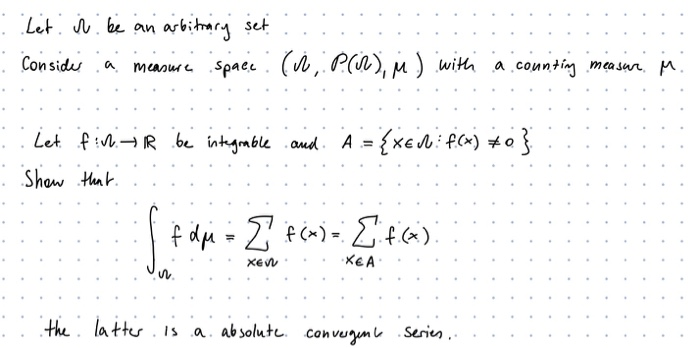 Let Ω be an arbitrary set
Consider a measure space (Ω, P(Ω), μ) with a counting measure μ.
Let f: Ω → ℝ be integrable and A = {x ∈ Ω : f(x) ≠ 0}
Show that
∫_Ω f dμ = ∑_{x∈Ω} f(x) = ∑_{x∈A} f(x)
the latter is a absolute convergent series.